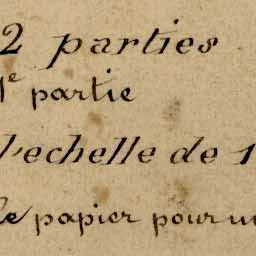 2 parties
1e partie
l'echelle de 1
le papier pour un